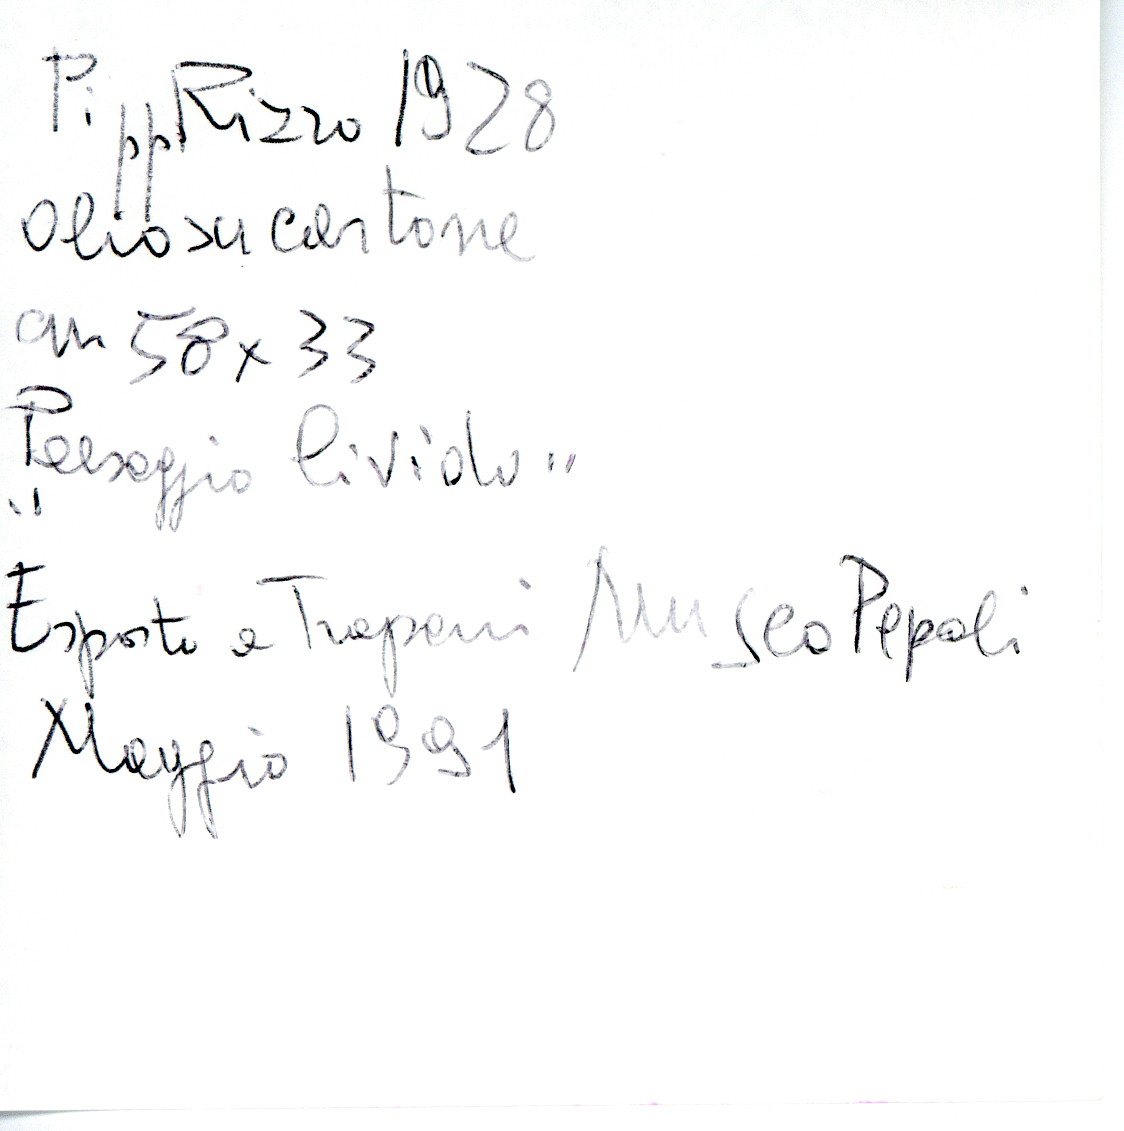 Pipp Rizzo 1928
olio su cartone
cm 58 x 33
"Paesaggio livido"
Esposto a Trapani Museo Pepoli
Maggio 1991